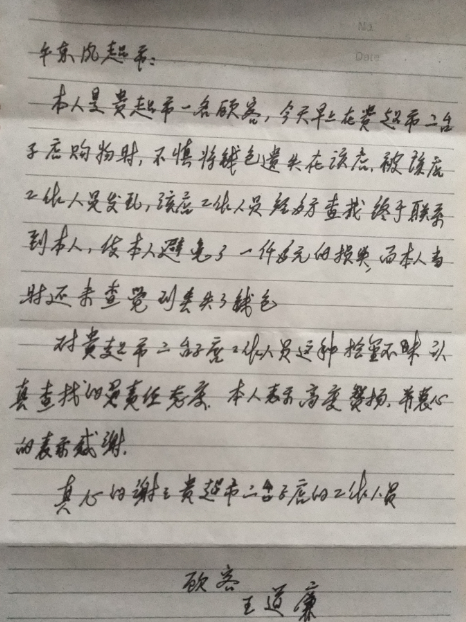 No.
Date
午京风超市：
本人是贵超市一名顾客，今天早上在贵超市二台
子店购物时，不慎将钱包遗失在该店，被该店
工作人员发现，该店工作人员经多方查找终于联系
到本人，使本人避免了一仟多元的损失，而本人当
时还未查觉到丢失了钱包
对贵超市二台子店工作人员这种拾金不昧认
真查找的负责任态度，本人表示高度赞扬，并衷心
的表示感谢。
真心的谢谢贵超市二台子店的工作人员
顾客
王道廉